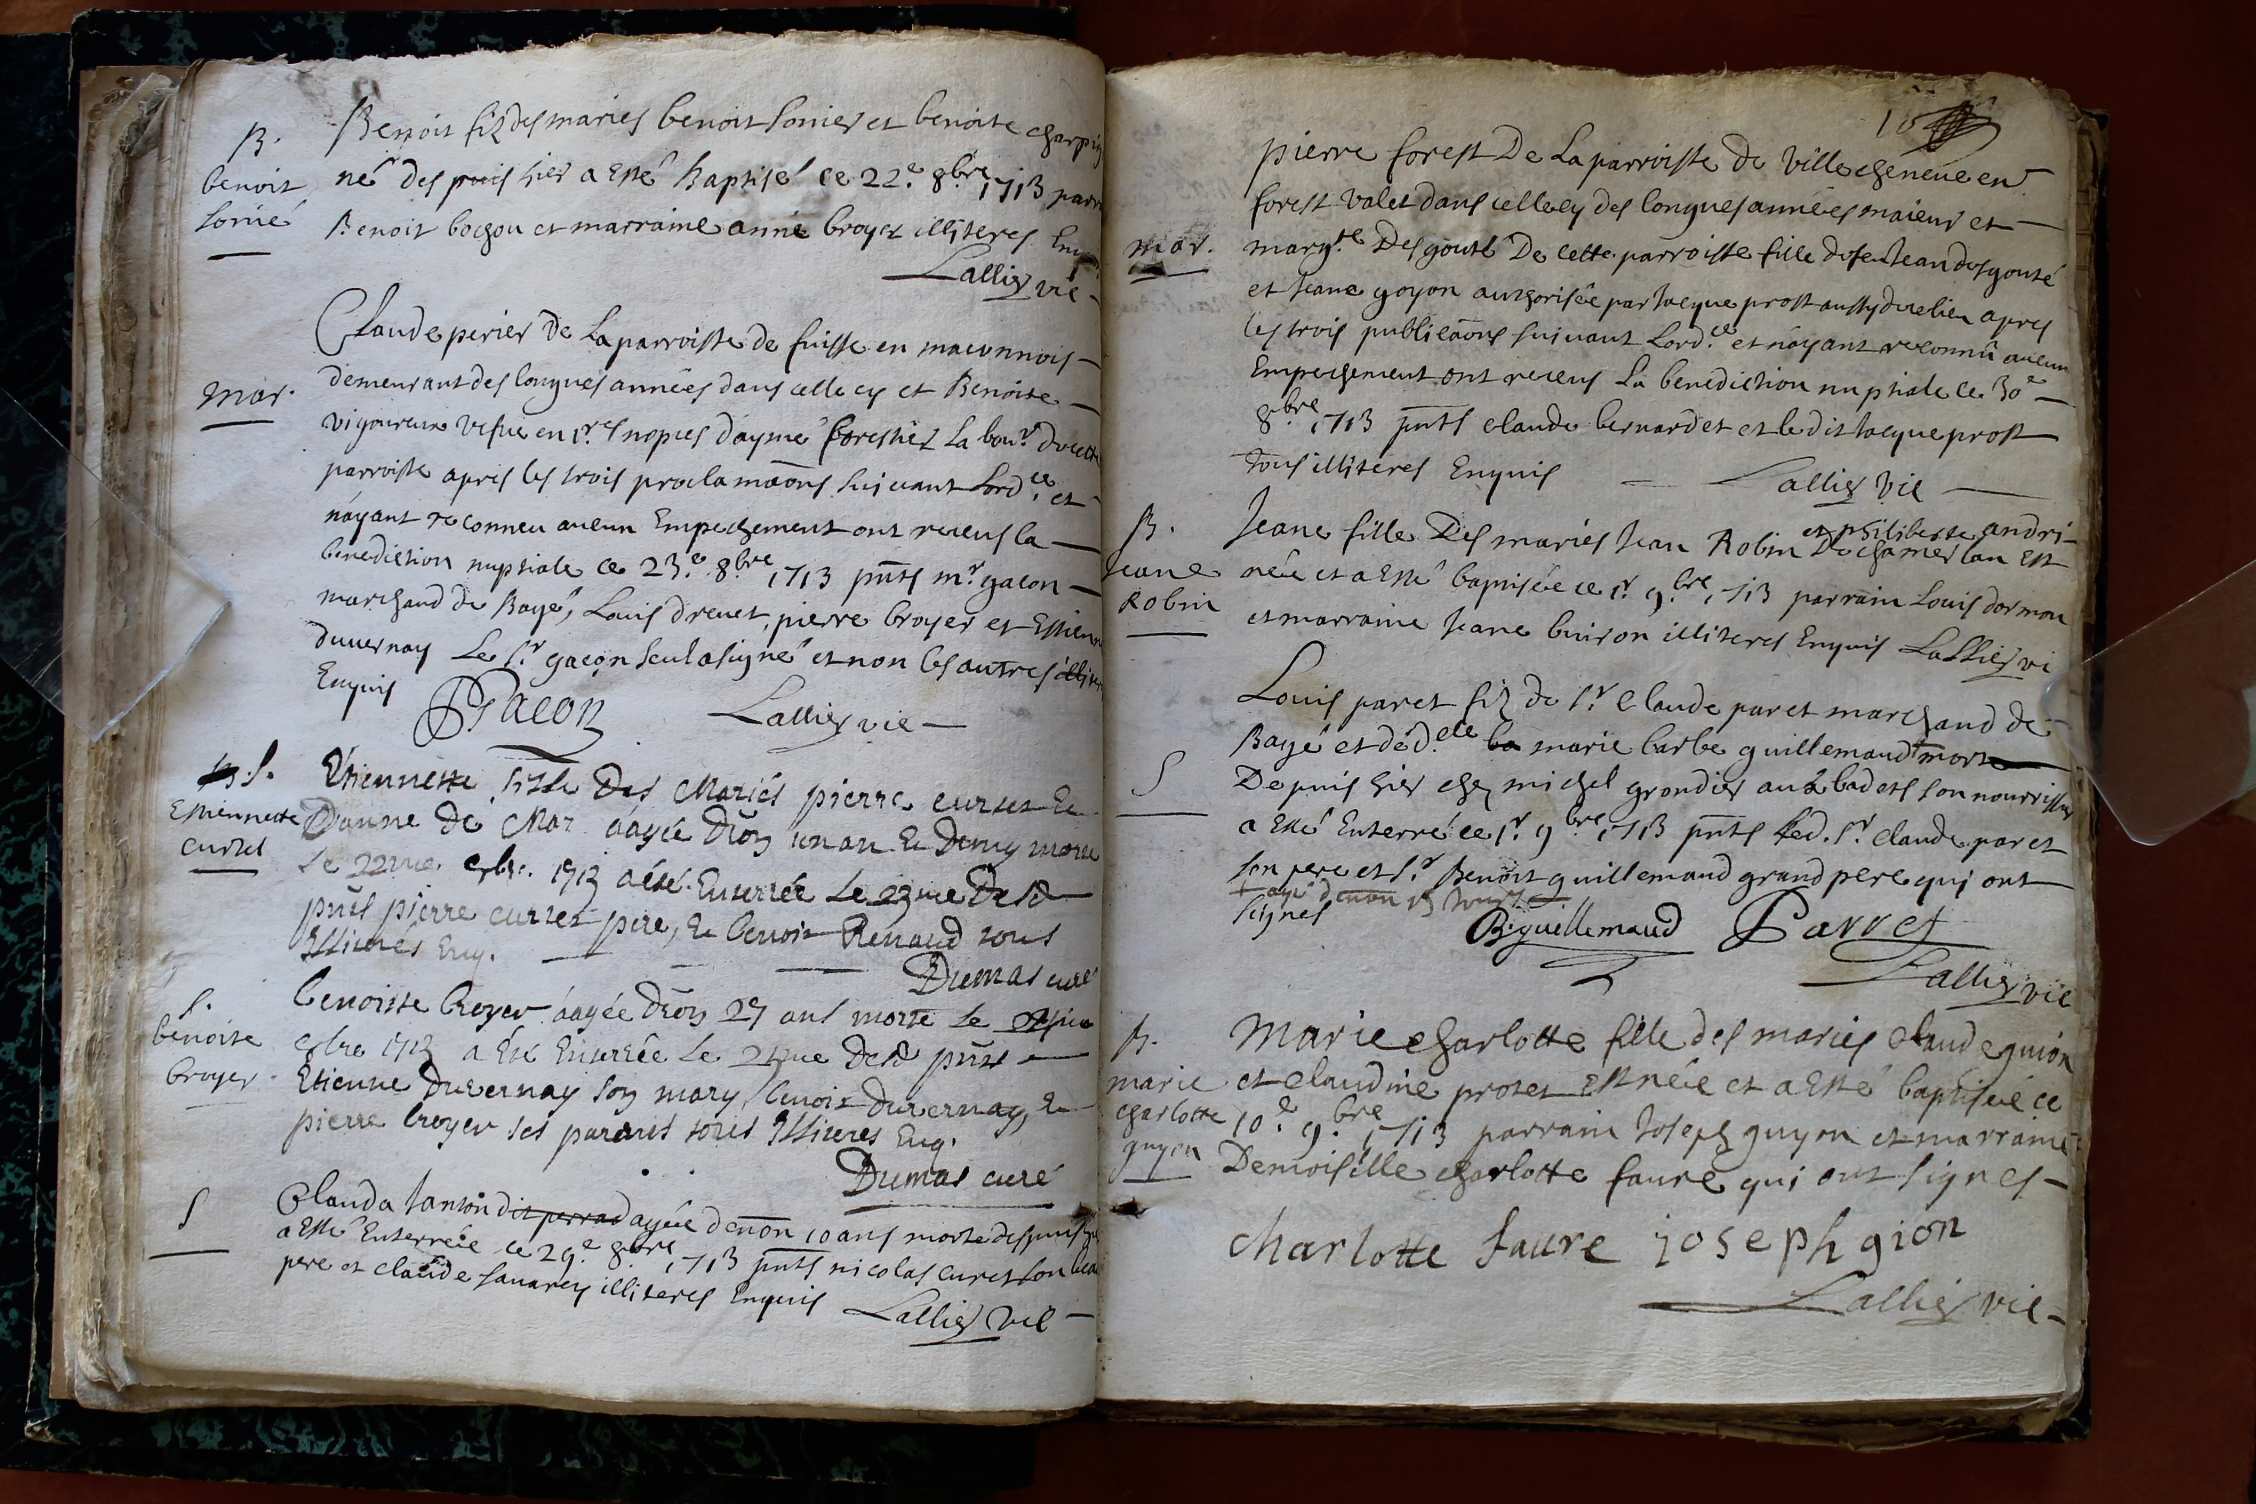 B.
benoit
sonié
Benoit filz des mariés benoit sonier et benoite charpi
né des puis hier a Esté Baptisé ce 22.e 8bre 1713 parr
Benoit bochon et marraine anne broyer illiteres Enq
Lallier vic
mar.
Claude perier De La parroisse de fuisse en maconnois
demeurant des longues années dans celle cy et Benoite
vigoureux vefue en 1.res nopces d'aymé forestier La bour. de cette
parroisse apres les trois proclamaons suivant Lord.ce et
n'ayant reconneu aucun Empechement ont receus la
benediction nuptiale ce 23.e 8bre 1713 pnts mr gacon
marchand de Bagé, Louis drevet, pierre broyer et Estienne
duvernay Le sr gacon seul a signé et non les autres illiter
Enquis
Gacon
Lallier vic
B. S.
Estiennette
curtet
Etiennette fille Des Mariés pierre curtet Et
D'anne De Mar aagée D'eon un an Et Demy morte
Le 22me 8bre 1713 a été Enterrée Le 23me Dud
pnts pierre curtet pere, Et benoit Renaud tous
Illiterés Enq.
Dumas curé
S.
benoite
broyer
benoitte broyer aagée D'eon 27 ans morte Le
8bre 1713 a Eté Enterrée Le 24me Dud pnts
Etienne Duvernay son mary, benoit Duvernay, Et
pierre broyer ses parents tous Illiteres Enq.
Dumas curé
S
Clauda Janton dit perrad agée d'enon 10 ans morte despuis hier
a Esté Enterrée ce 29.e 8bre 1713 pnts nicolas curet son beau
pere et claude savarcy illiteres Enquis
Lallier vic
10
mar.
pierre forest De La parroisse de Villecheneve en
forest valet dans celle cy des longues années maieur et
margte Desgouté De cette parroisse fille de feu Jean desgouté
et Jeane goyon authorisée par Jacque prost aussy du lieu apres
les trois publicaons suivant Lord.ce et n'ayant reconnu aucun
Empechement ont receus La benediction nuptiale ce 30e
8bre 1713 pnts claude bernardet et le dit Jacque prost
tous illiteres Enquis
Lallier vic
B.
Jeane
Robin
et philiberte andri
Jeane fille Des mariés Jean Robin De chamerlan Est
née et a Esté baptisée ce 1r 9bre 1713 parrain Louis dormon
et marraine Jeane buiron illiteres Enquis Lallier vi
S
Louis paret filz de sr Claude paret marchand de
Bagé et de d.elle marie barbe guillemaud + mort
Depuis hier chez michel grondier aux badets son nourrissier
a Esté Enterré ce 1r 9bre 1713 pnts led. sr claude paret
son pere et sr Benoit guillemaud grand pere qui ont
+ agé d'enon 15 jours
signés
B. guillemaud
Parret
Lallier vic
B.
marie
charlotte
guyon
Marie charlotte fille des mariés claude guion
et claudine protet Est née et a Esté baptisée ce
10.e 9.bre 1713 parrain Joseph guyon et marraine
Demoiselle charlotte faure qui ont signés
charlotte faure
joseph gion
Lallier vic